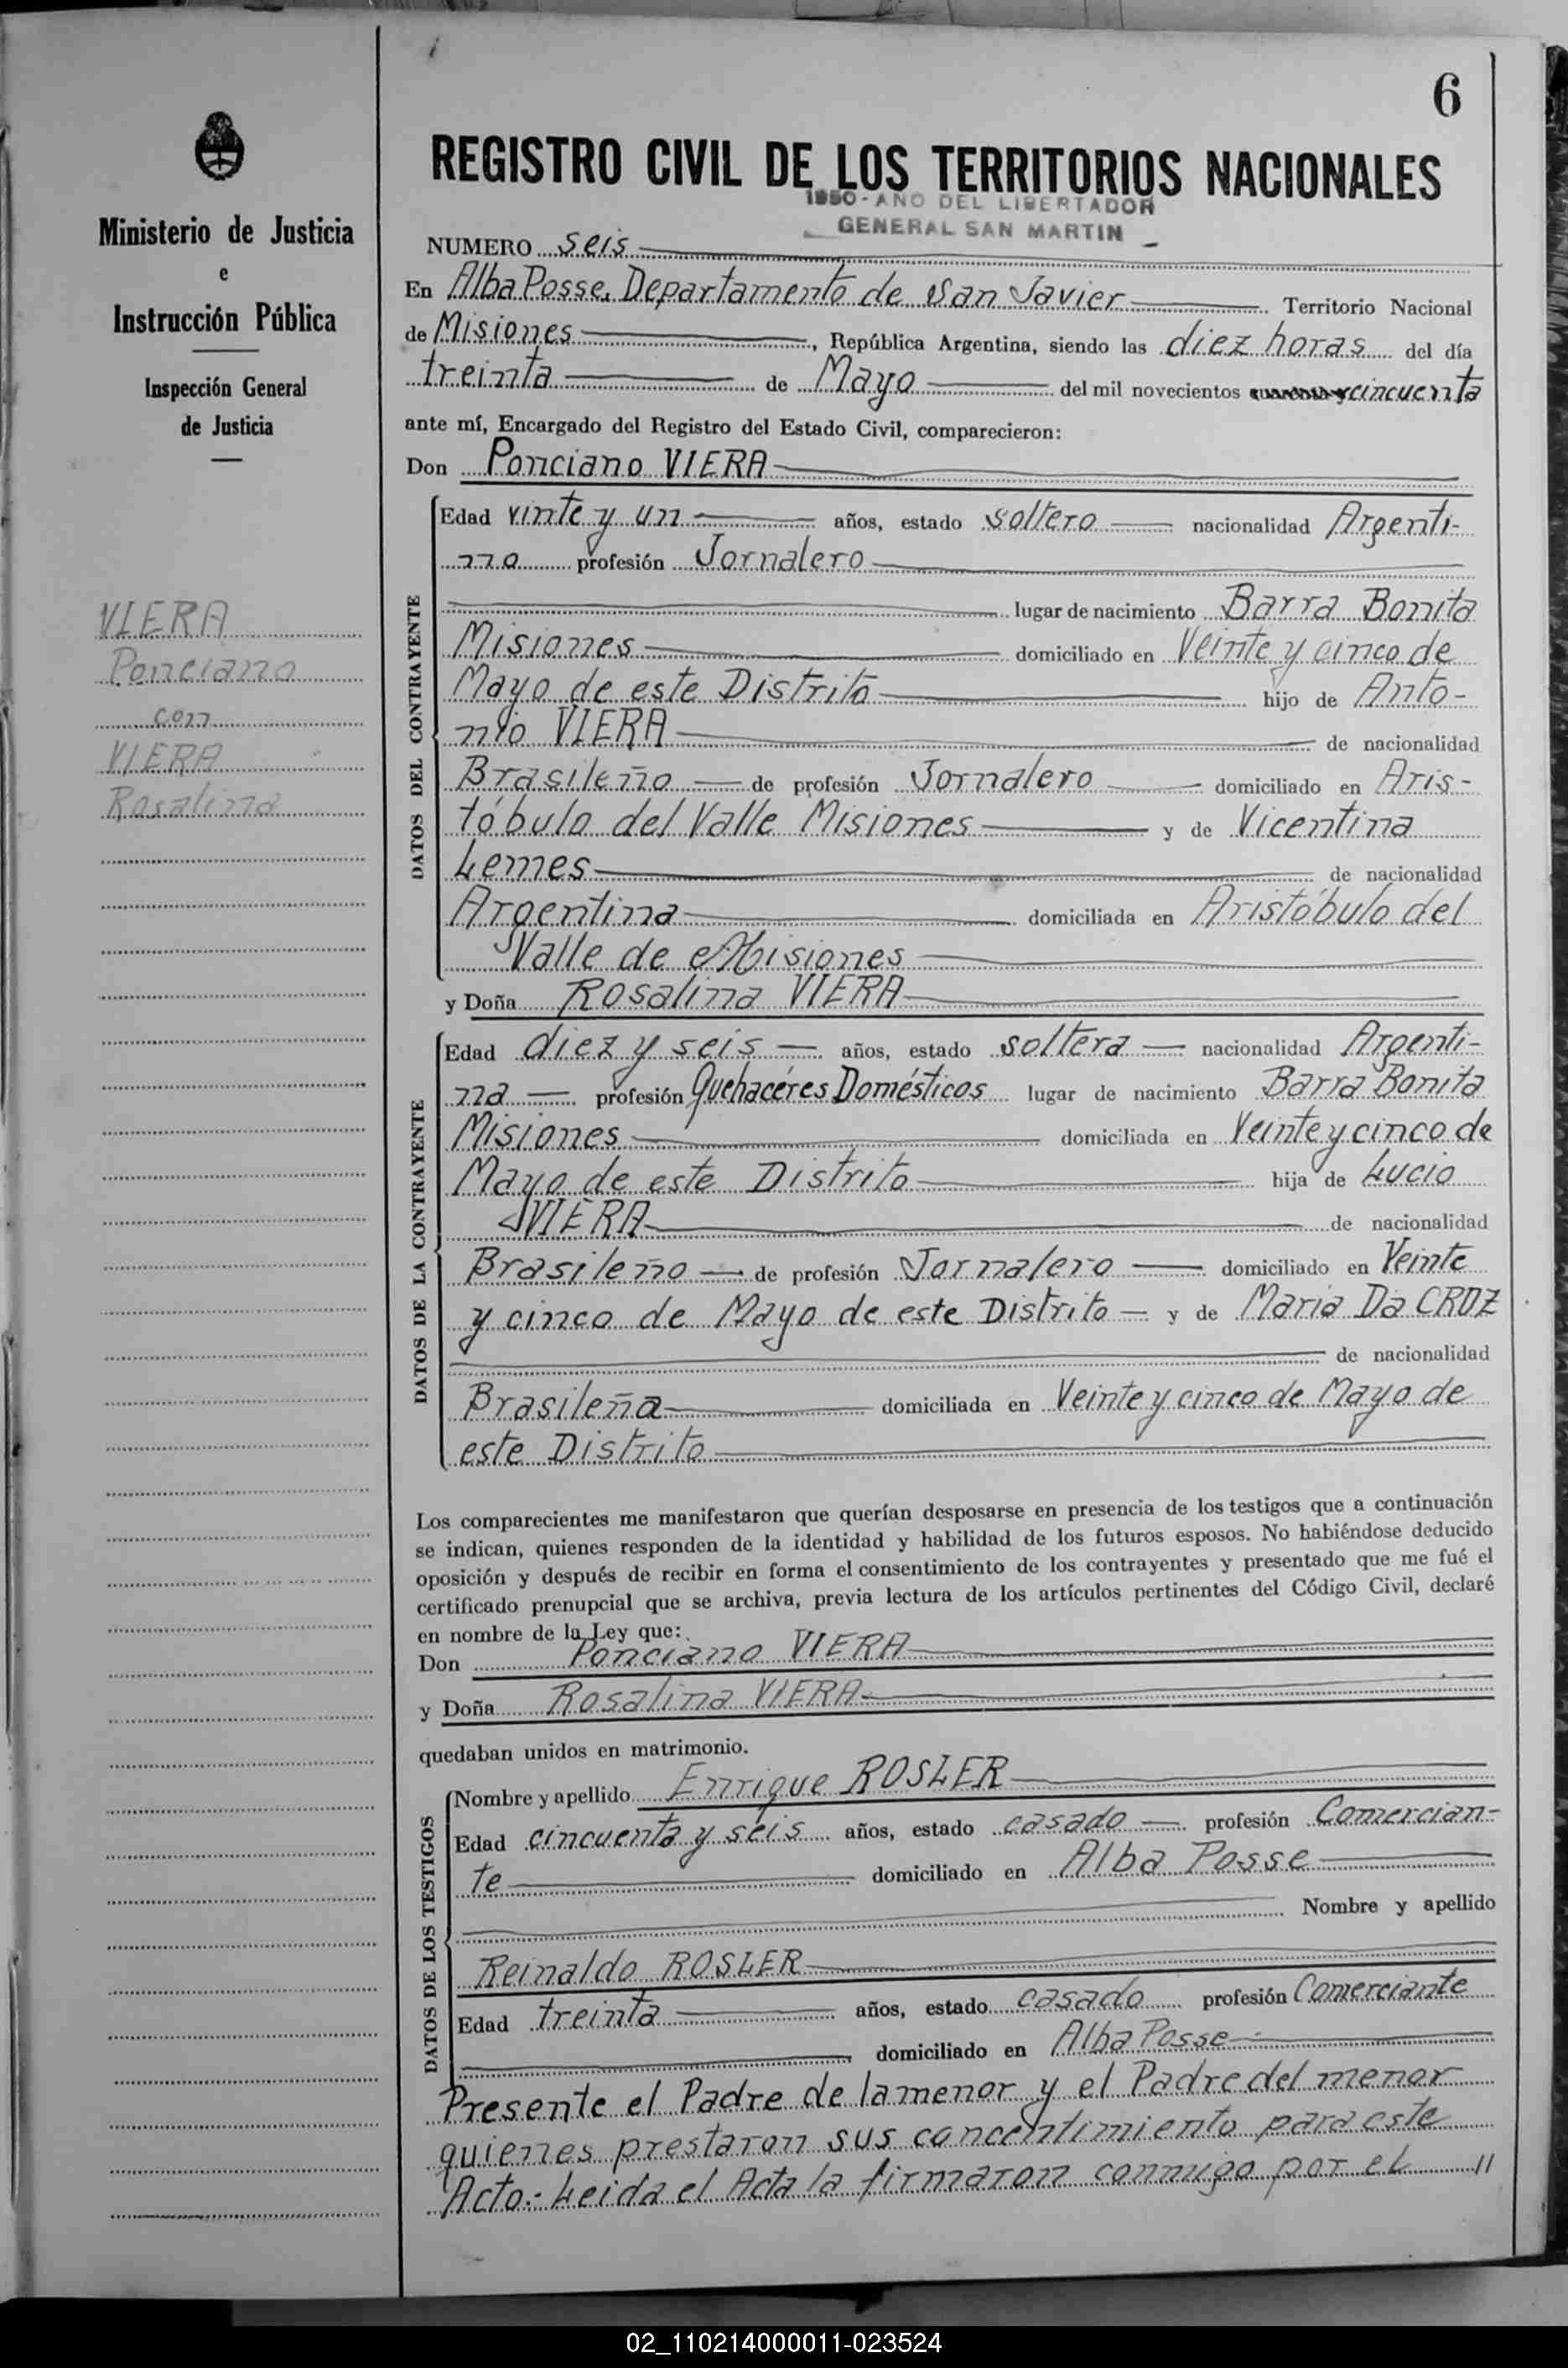 6
REGISTRO CIVIL DE LOS TERRITORIOS NACIONALES
1950-AÑO DEL LIBERTADOR
GENERAL SAN MARTIN
Ministerio de Justicia
e
Instrucción Pública
Inspección General
de Justicia
VIERA
Ponciano
con
VIERA
Rosalina
NUMERO seis
En Alba Posse, Departamento de San Javier Territorio Nacional
de Misiones, República Argentina, siendo las diez horas del día
treinta de Mayo del mil novecientos cuarenta y cincuenta
ante mí, Encargado del Registro del Estado Civil, comparecieron:
Don Ponciano VIERA
DATOS DEL CONTRAYENTE
Edad vinte y un años, estado soltero nacionalidad Argenti-
no profesión Jornalero
lugar de nacimiento Barra Bonita
Misiones domiciliado en Veinte y cinco de
Mayo de este Distrito hijo de Anto-
nio VIERA de nacionalidad
Brasileño de profesión Jornalero domiciliado en Aris-
tóbulo del Valle Misiones y de Vicentina
Lemes de nacionalidad
Argentina domiciliada en Aristóbulo del
Valle de Misiones
y Doña Rosalina VIERA
DATOS DE LA CONTRAYENTE
Edad diez y seis años, estado soltera nacionalidad Argenti-
na profesión Quehacéres Domésticos lugar de nacimiento Barra Bonita
Misiones domiciliada en Veinte y cinco de
Mayo de este Distrito hija de Lucio
VIERA de nacionalidad
Brasileño de profesión Jornalero domiciliado en Veinte
y cinco de Mayo de este Distrito y de Maria Da CROZ
de nacionalidad
Brasileña domiciliada en Veinte y cinco de Mayo de
este Distrito
Los comparecientes me manifestaron que querían desposarse en presencia de los testigos que a continuación
se indican, quienes responden de la identidad y habilidad de los futuros esposos. No habiéndose deducido
oposición y después de recibir en forma el consentimiento de los contrayentes y presentado que me fué el
certificado prenupcial que se archiva, previa lectura de los artículos pertinentes del Código Civil, declaré
en nombre de la Ley que:
Don Ponciano VIERA
y Doña Rosalina VIERA
quedaban unidos en matrimonio.
DATOS DE LOS TESTIGOS
Nombre y apellido Enrique ROSLER
Edad cincuenta y seis años, estado casado profesión Comercian-
te domiciliado en Alba Posse
Nombre y apellido
Reinaldo ROSLER
Edad treinta años, estado casado profesión Comerciante
domiciliado en Alba Posse
Presente el Padre de la menor y el Padre del menor
quienes prestaron sus concentimiento para este
Acto.- Leida el Acta la firmaron conmigo por el //
02_110214000011-023524